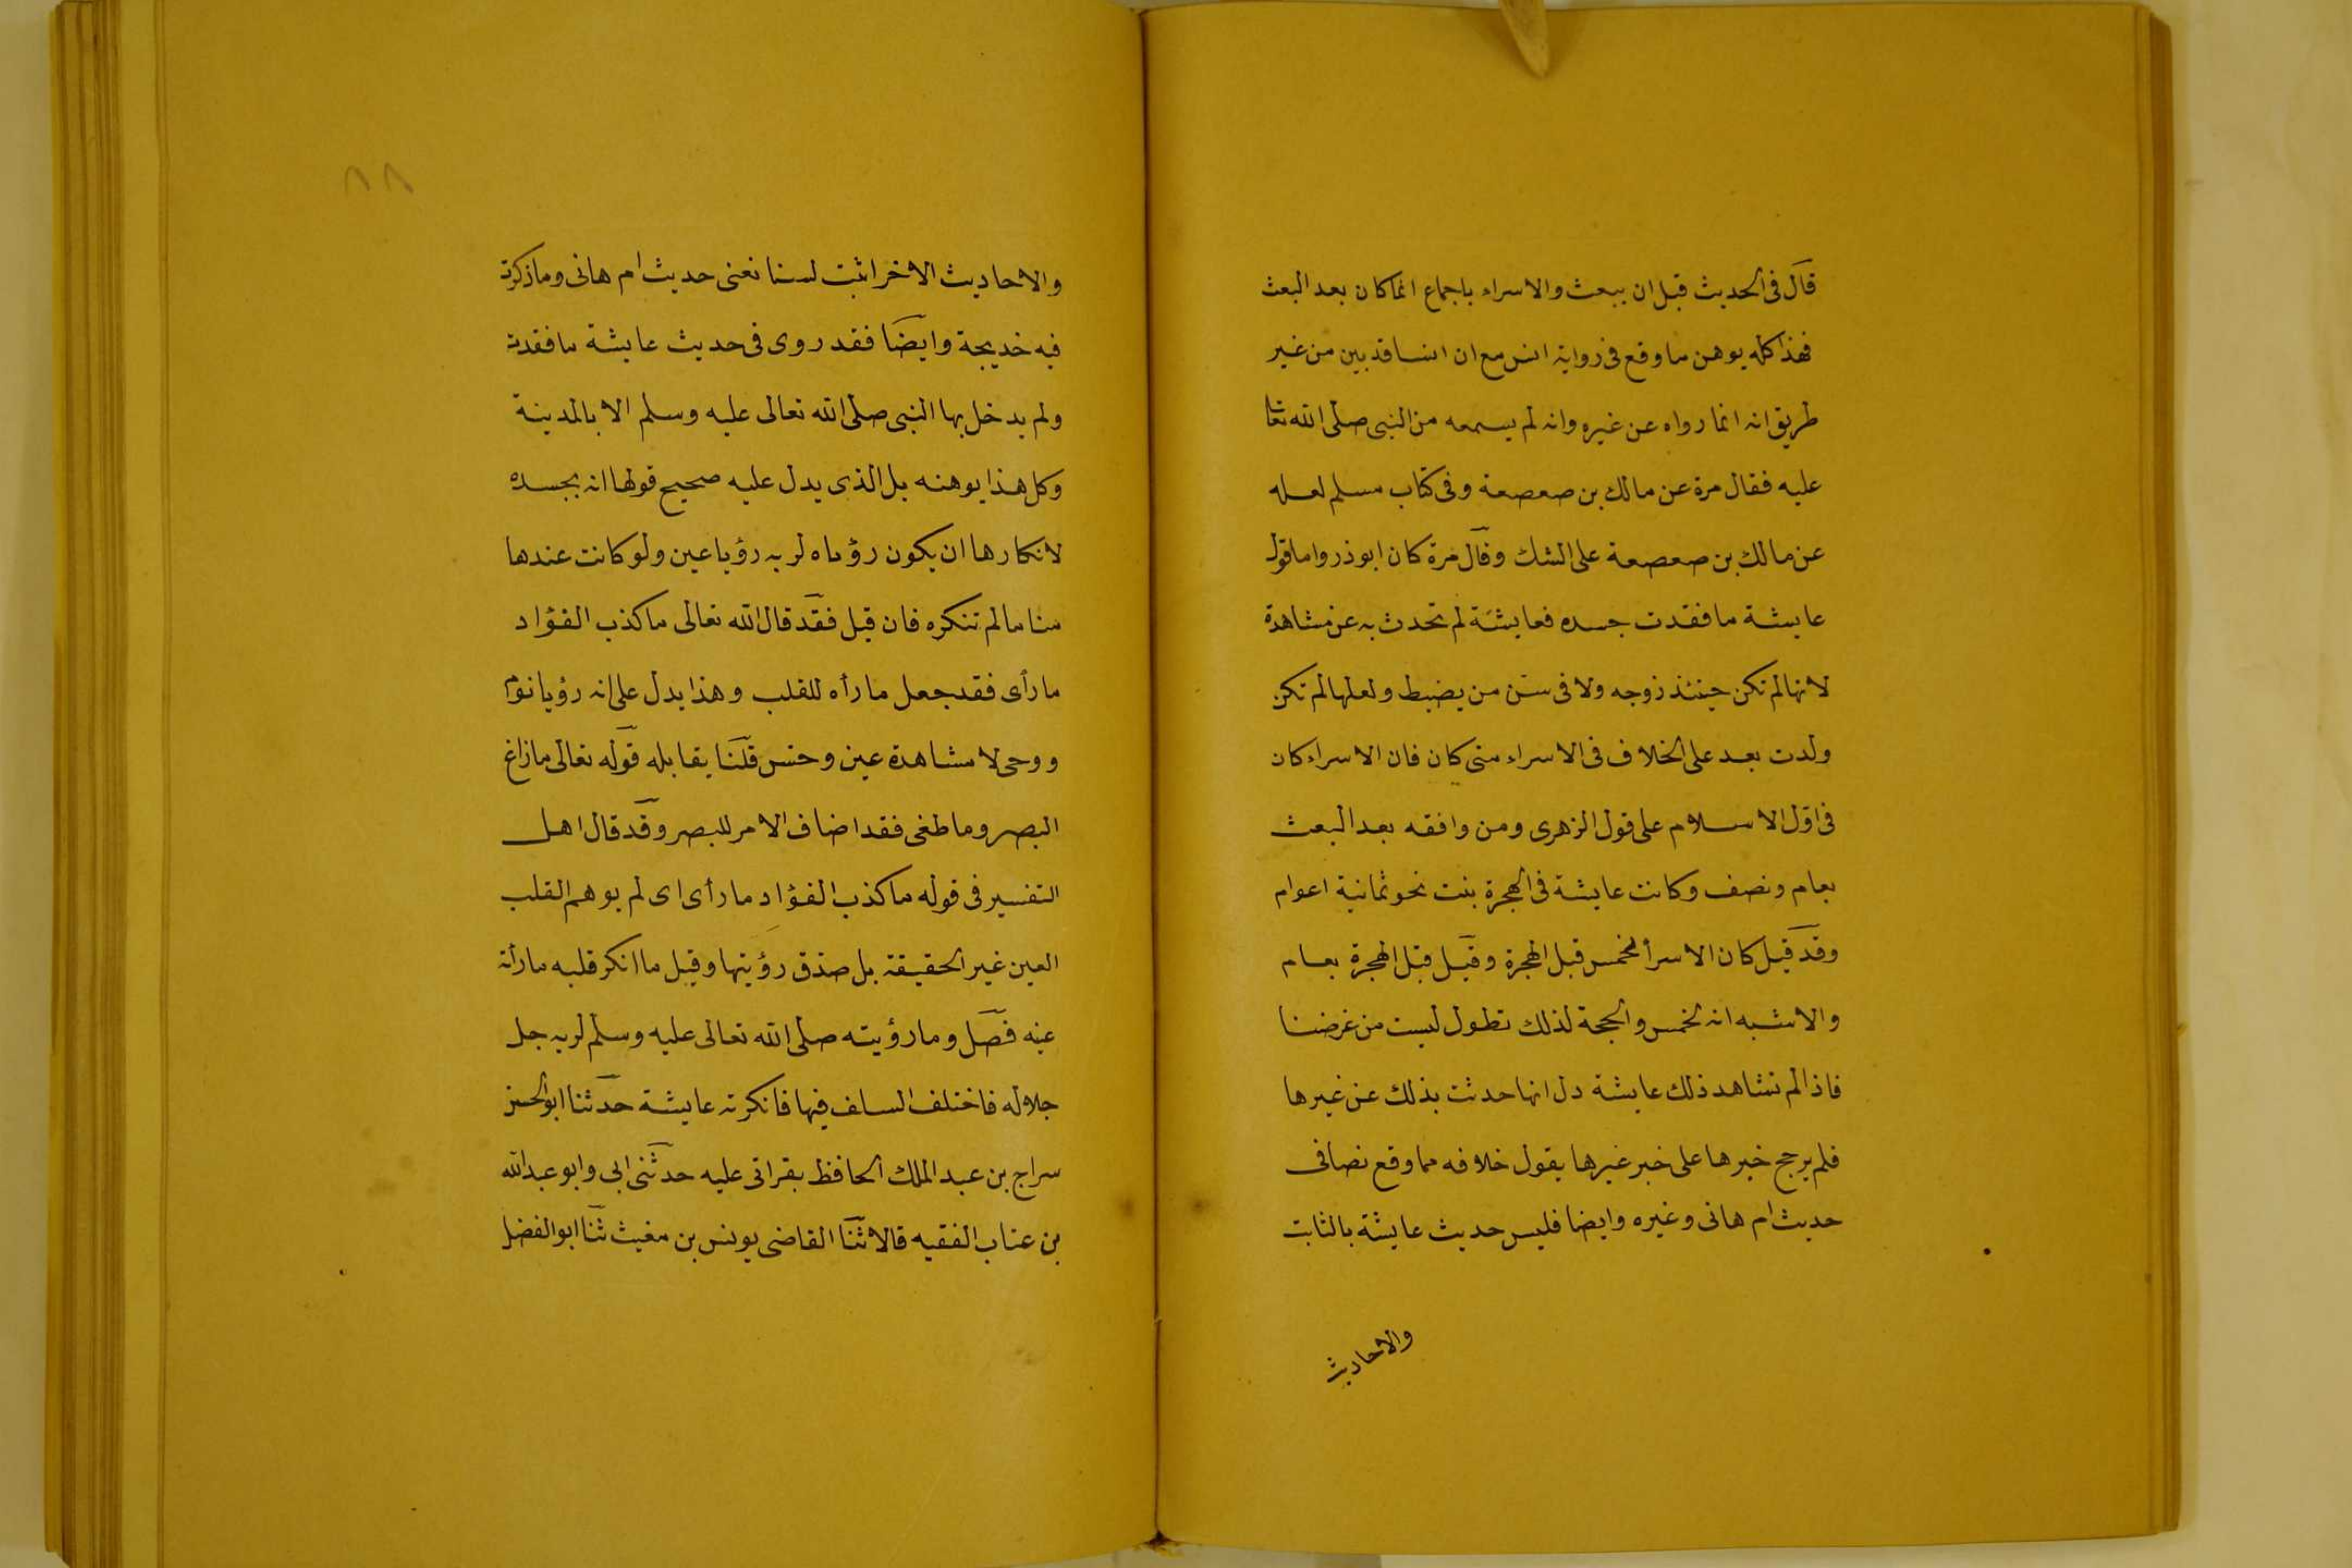 قال فى الحديث قبل ان يبعث والاسراء باجماع انما كان بعد البعث
فهذا كله يوهن ما وقع فى رواية انس مع ان انسا قد بين من غير
طريق انه انما رواه عن غيره وانه لم يسمعه من النبى صلى الله تعا
عليه فقال مرة عن مالك بن صعصعة وفى كتاب مسلم لعله
عن مالك بن صعصعة على الشك وقال مرة كان ابوذر واما قول
عايشة ما فقدت جسده فعايشة لم تحدث به عن مشاهدة
لانها لم تكن حينئذ زوجه ولا فى سن من يضبط ولعلها لم تكن
ولدت بعد على الخلاف فى الاسراء متى كان فان الاسراء كان
فى اول الاسلام على قول الزهرى ومن وافقه بعد البعث
بعام ونصف وكانت عايشة فى الهجرة بنت نحو ثمانية اعوام
وقد قيل كان الاسرأ لخمس قبل الهجرة وقيل قبل الهجرة بعام
والاشبه انه لخمس والحجة لذلك تطول ليست من غرضنا
فاذا لم تشاهد ذلك عايشة دل انها حدثت بذلك عن غيرها
فلم يرجح خبرها على خبر غيرها يقول خلافه مما وقع نصا فى
حديث ام هانى وغيره وايضا فليس حديث عايشة بالثابت
والاحاديث
٨٨
والاحاديث الاخر اثبت لسنا نعنى حديث ام هانى وما ذكرت
فيه خديجة وايضا فقد روى فى حديث عايشة ما فقدت
ولم يدخل بها النبى صلى الله تعالى عليه وسلم الا بالمدينة
وكل هذا يوهنه بل الذى يدل عليه صحيح قولها انه بجسده
لانكارها ان يكون رؤياه لربه رؤيا عين ولو كانت عندها
مناما لم تنكره فان قيل فقد قال الله تعالى ما كذب الفؤاد
ما رأى فقد جعل ما رأه للقلب وهذا يدل على انه رؤيا نوم
ووحى لا مشاهدة عين وحس قلنا يقابله قوله تعالى ما زاغ
البصر وما طغى فقد اضاف الامر للبصر وقد قال اهل
التفسير فى قوله ما كذب الفؤاد ما رأى اى لم يوهم القلب
العين غير الحقيقة بل صدق رؤيتها وقيل ما انكر قلبه ما رأته
عينه فصل وما رؤيته صلى الله تعالى عليه وسلم لربه جل
جلاله فاختلف السلف فيها فانكرته عايشة حدثنا ابوالحسن
سراج بن عبد الملك الحافظ بقراتى عليه حدثنى ابى وابو عبدالله
بن عتاب الفقيه قالا ثنا القاضى يونس بن مغيث ثنا ابوالفضل